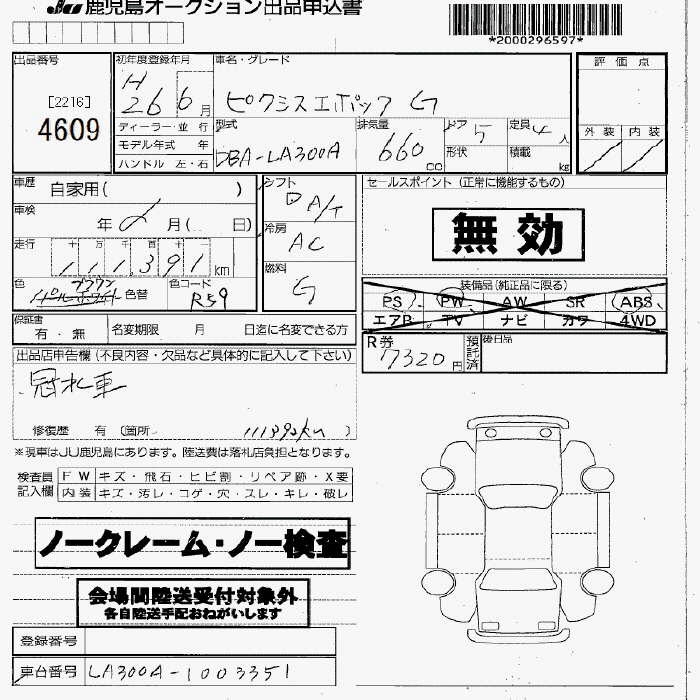 JU 鹿児島オークション出品申込書
*2000296597*
出品番号
[2216]
4609
初年度登録年月
H
26 6月
車名・グレード
ピクシスエポック G
評価点
外装 内装
ディーラー・並行
モデル年式 年
ハンドル 左・右
型式
DBA-LA300A
排気量
660 cc
ドア 5
形状
定員 4人
積載 kg
車歴 自家用( )
車検 年 月( 日)
走行 十万千百十一
111,391 km
色
色替
色コード
R59
シフト
A/T
冷房
AC
燃料
G
セールスポイント (正常に機能するもの)
無効
装備品(純正品に限る)
PS PW AW SR ABS
エアB TV ナビ カワ 4WD
保証書
有・無
名変期限 月 日迄に名変できる方
R券
7320円
預託済
後日品
出品店申告欄 (不良内容・欠品など具体的に記入して下さい)
冠水車
修復歴 有 (箇所
111392km
※現車はJU鹿児島にあります。陸送費は落札店負担となります。
検査員記入欄
FW キズ・飛石・ヒビ割・リペア跡・X要
内装 キズ・汚レ・コゲ・穴・スレ・キレ・破レ
ノークレーム・ノー検査
会場間陸送受付対象外
各自陸送手配おねがいします
登録番号
車台番号 LA300A-1003351